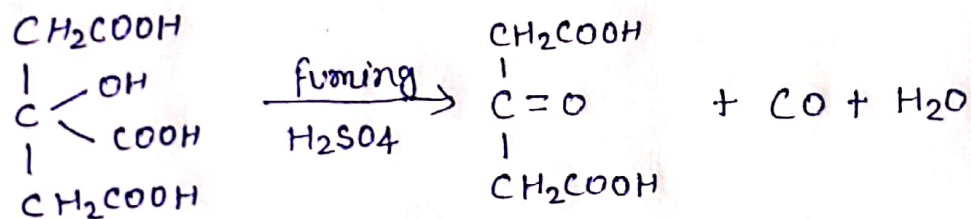 CH₂COOH
C OH COOH
CH₂COOH
fuming
H₂SO₄
CH₂COOH
C=O
CH₂COOH
+ CO + H₂O